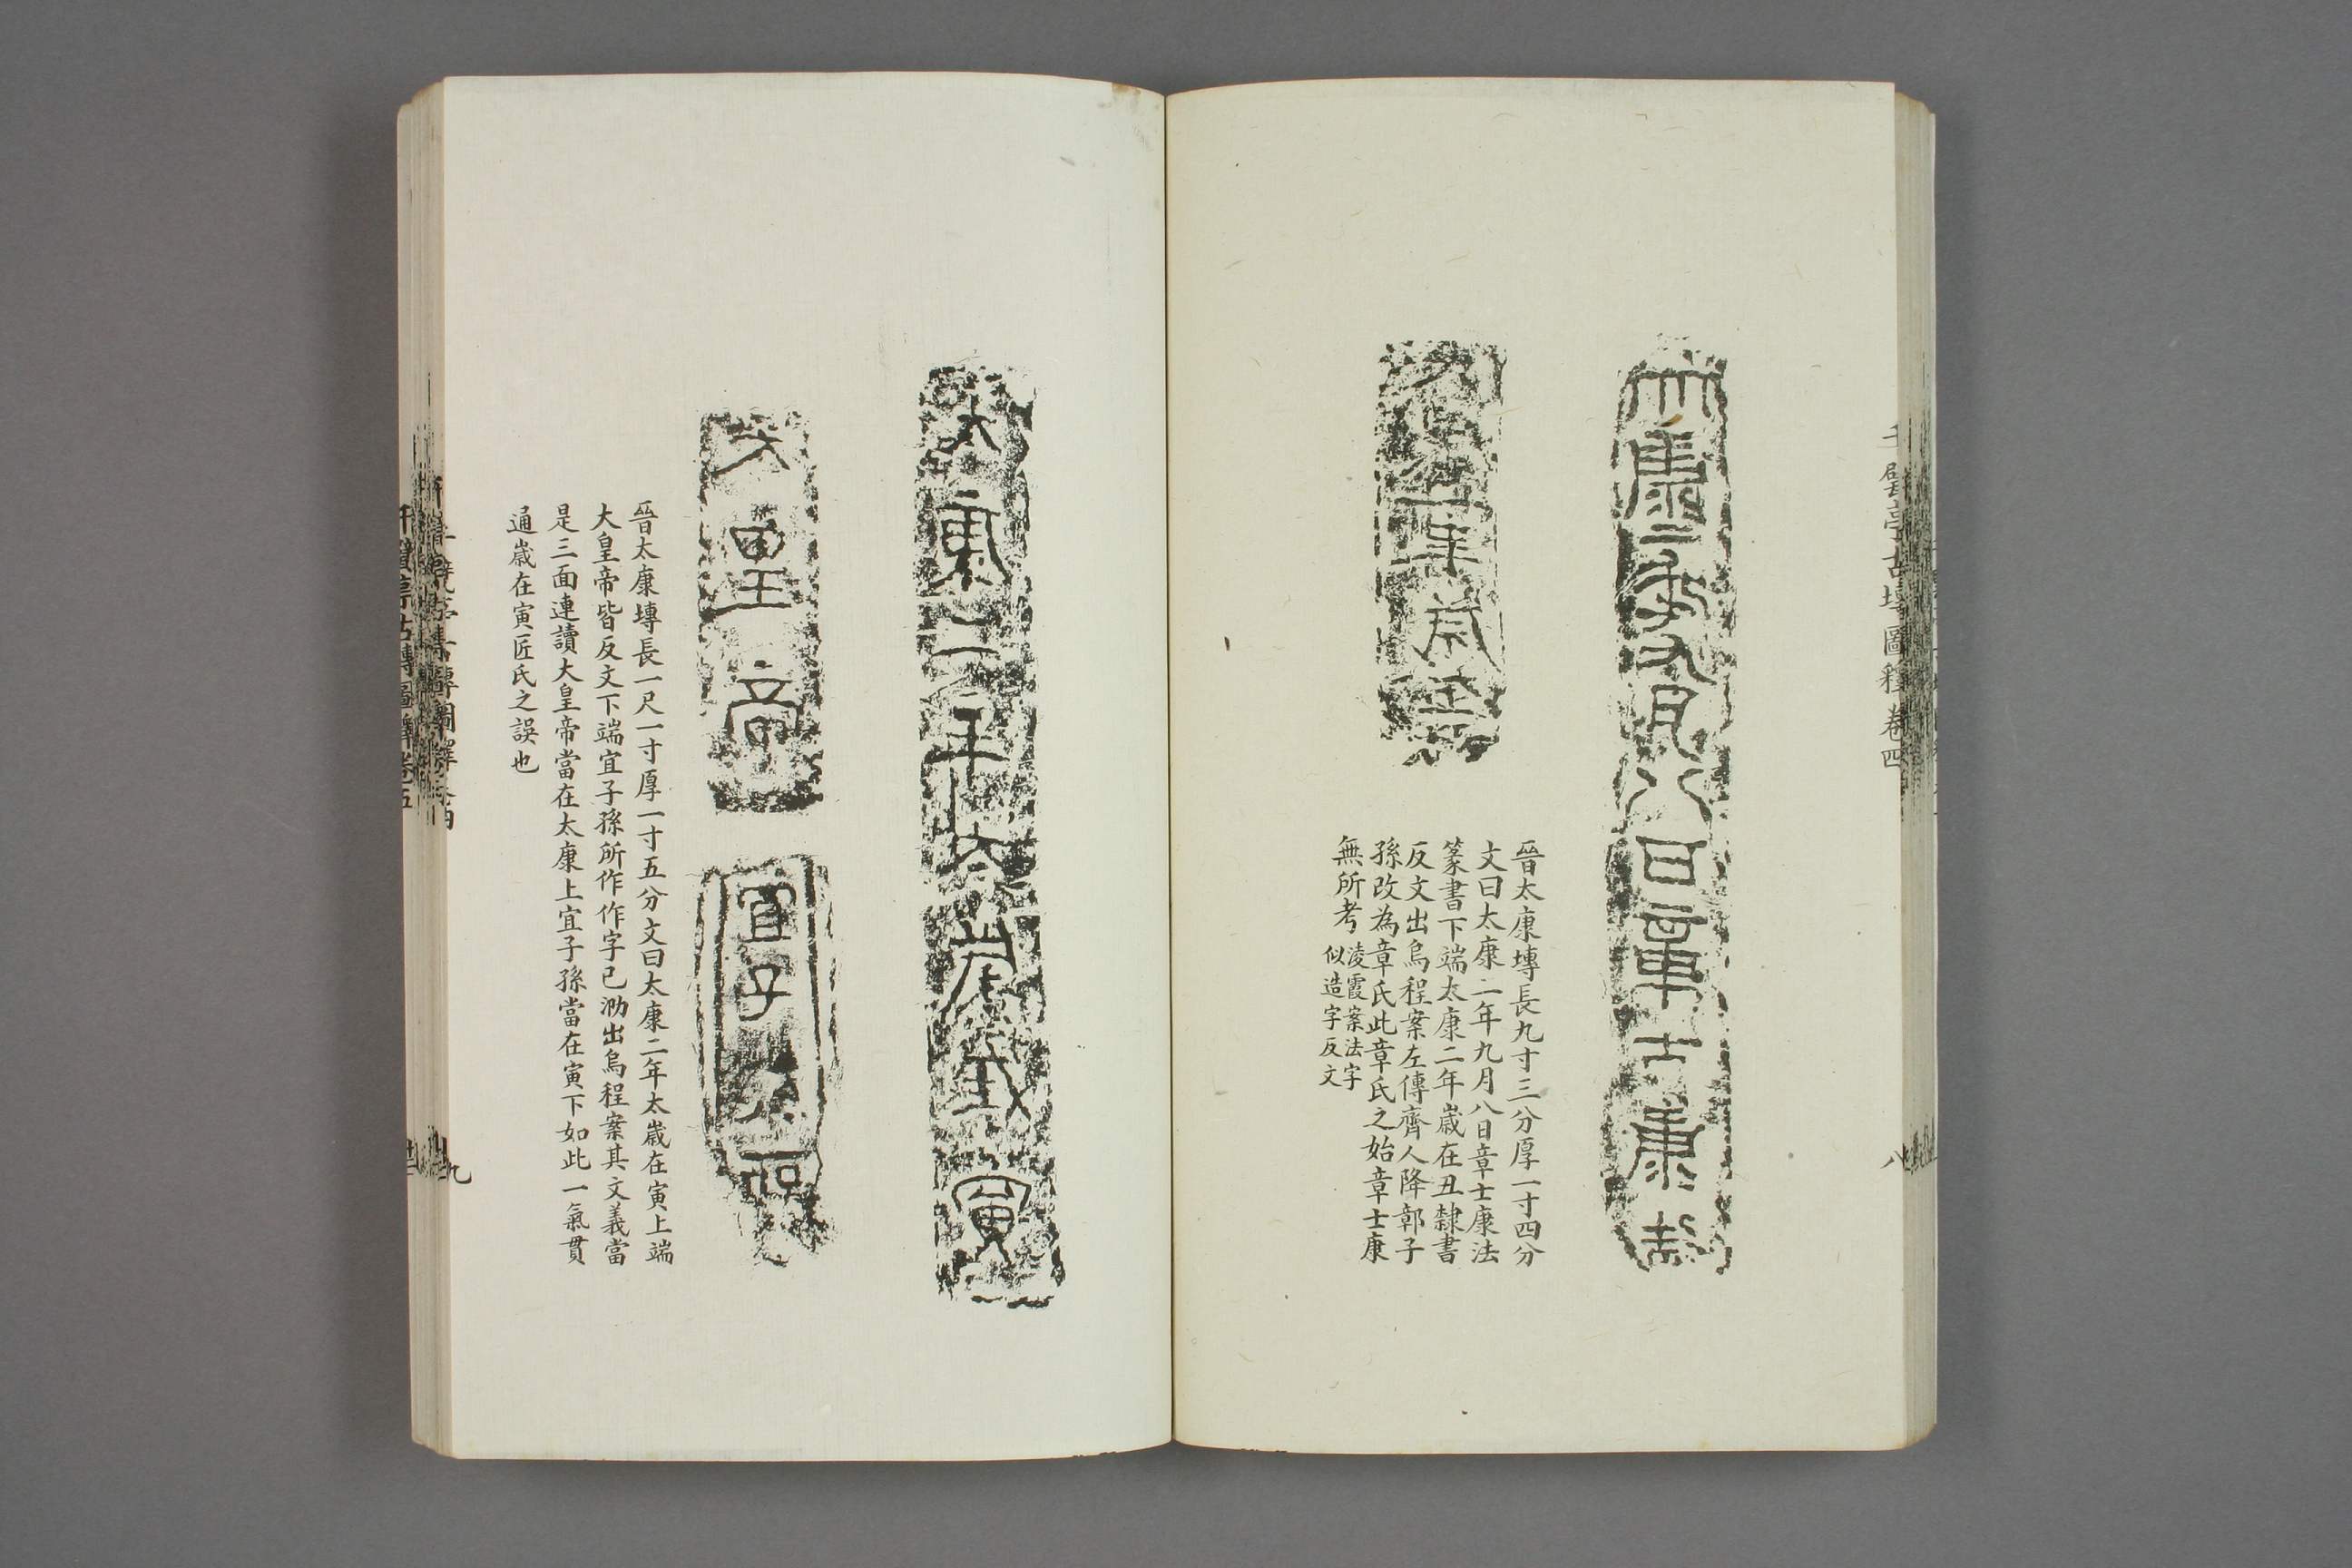 千甓亭古塼圖釋卷四
八
太康二年九月八日章士康法
太康二年歲在丑
晉太康塼長九寸三分厚一寸四分
文曰太康二年九月八日章士康法
篆書下端太康二年歲在丑隸書
反文出烏程案左傳齊人降鄣子
孫改為章氏此章氏之始章士康
無所考
淩霞案法字
似造字反文
太康二年太歲在寅
大皇帝
宜子孫所
晉太康塼長一尺一寸厚一寸五分文曰太康二年太歲在寅上端
大皇帝皆反文下端宜子孫所作作字已泐出烏程案其文義當
是三面連讀大皇帝當在太康上宜子孫當在寅下如此一氣貫
通歲在寅匠氏之誤也
九